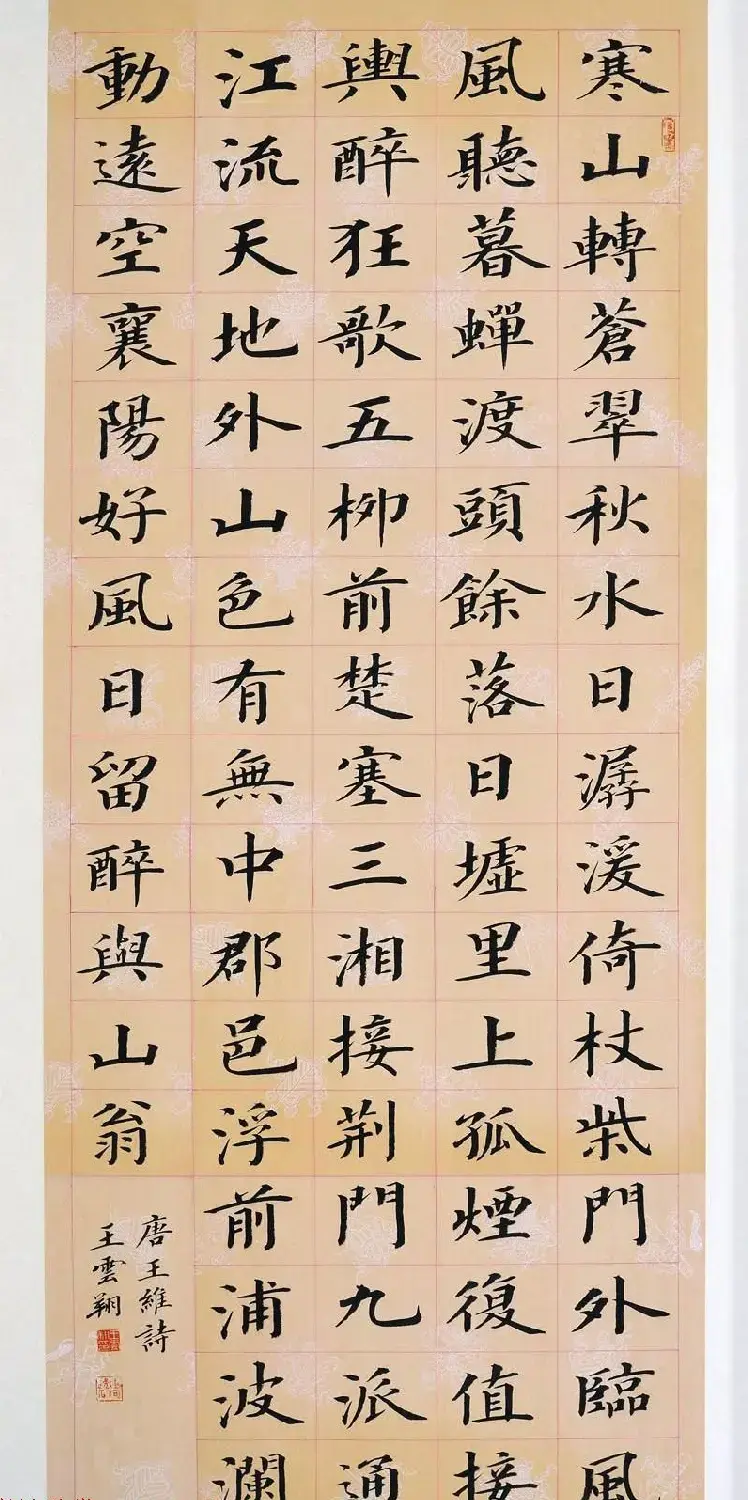 寒山轉蒼翠秋水日潺湲倚杖柴門外臨風
風聽暮蟬渡頭餘落日墟里上孤煙復值接
輿醉狂歌五柳前楚塞三湘接荊門九派通
江流天地外山色有無中郡邑浮前浦波瀾
動遠空襄陽好風日留醉與山翁
唐王維詩
王雲翔